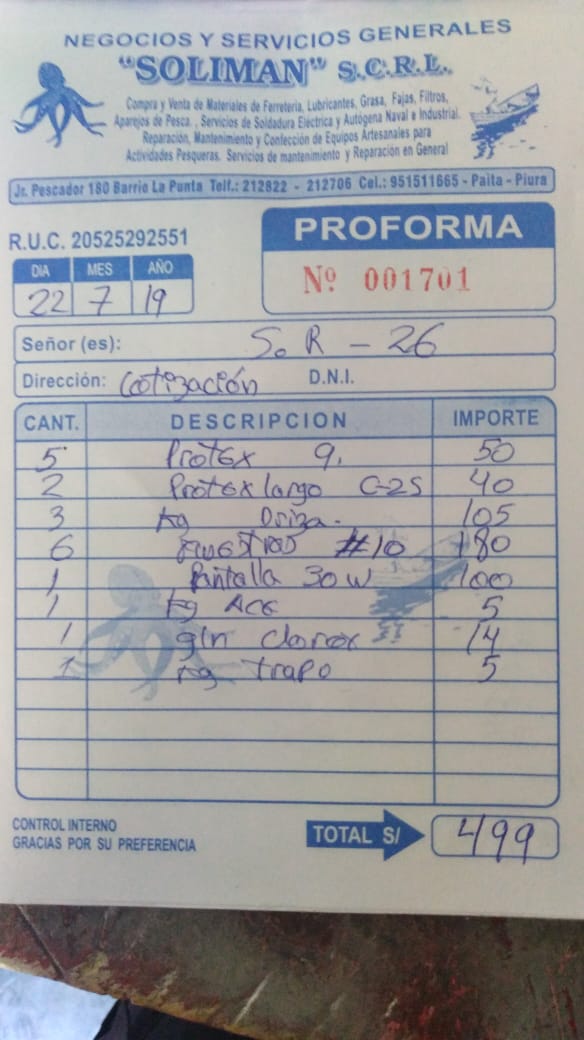 NEGOCIOS Y SERVICIOS GENERALES
"SOLIMAN" S.C.R.L.
Compra y Venta de Materiales de Ferretería, Lubricantes, Grasa, Fajas, Filtros,
Aparejos de Pesca. , Servicios de Soldadura Eléctrica y Autógena Naval e Industrial.
Reparación, Mantenimiento y Confección de Equipos Artesanales para
Actividades Pesqueras. Servicios de mantenimiento y Reparación en General
Jr. Pescador 180 Barrio La Punta Telf.: 212822 - 212706 Cel.: 951511665 - Paita - Piura
R.U.C. 20525292551
PROFORMA
Nº 001701
DIA MES AÑO
22 7 19
Señor (es): S. R - 26
Dirección: Cotización D.N.I.
CANT. DESCRIPCION IMPORTE
5 Protex 9. 50
2 Protex largo C-25 40
3 Kg Driza. 105
6 #10 180
1 Pantalla 30 W 100
1 Kg ACE 5
1 gln clorox 14
1 Kg trapo 5
CONTROL INTERNO
GRACIAS POR SU PREFERENCIA
TOTAL S/ 499